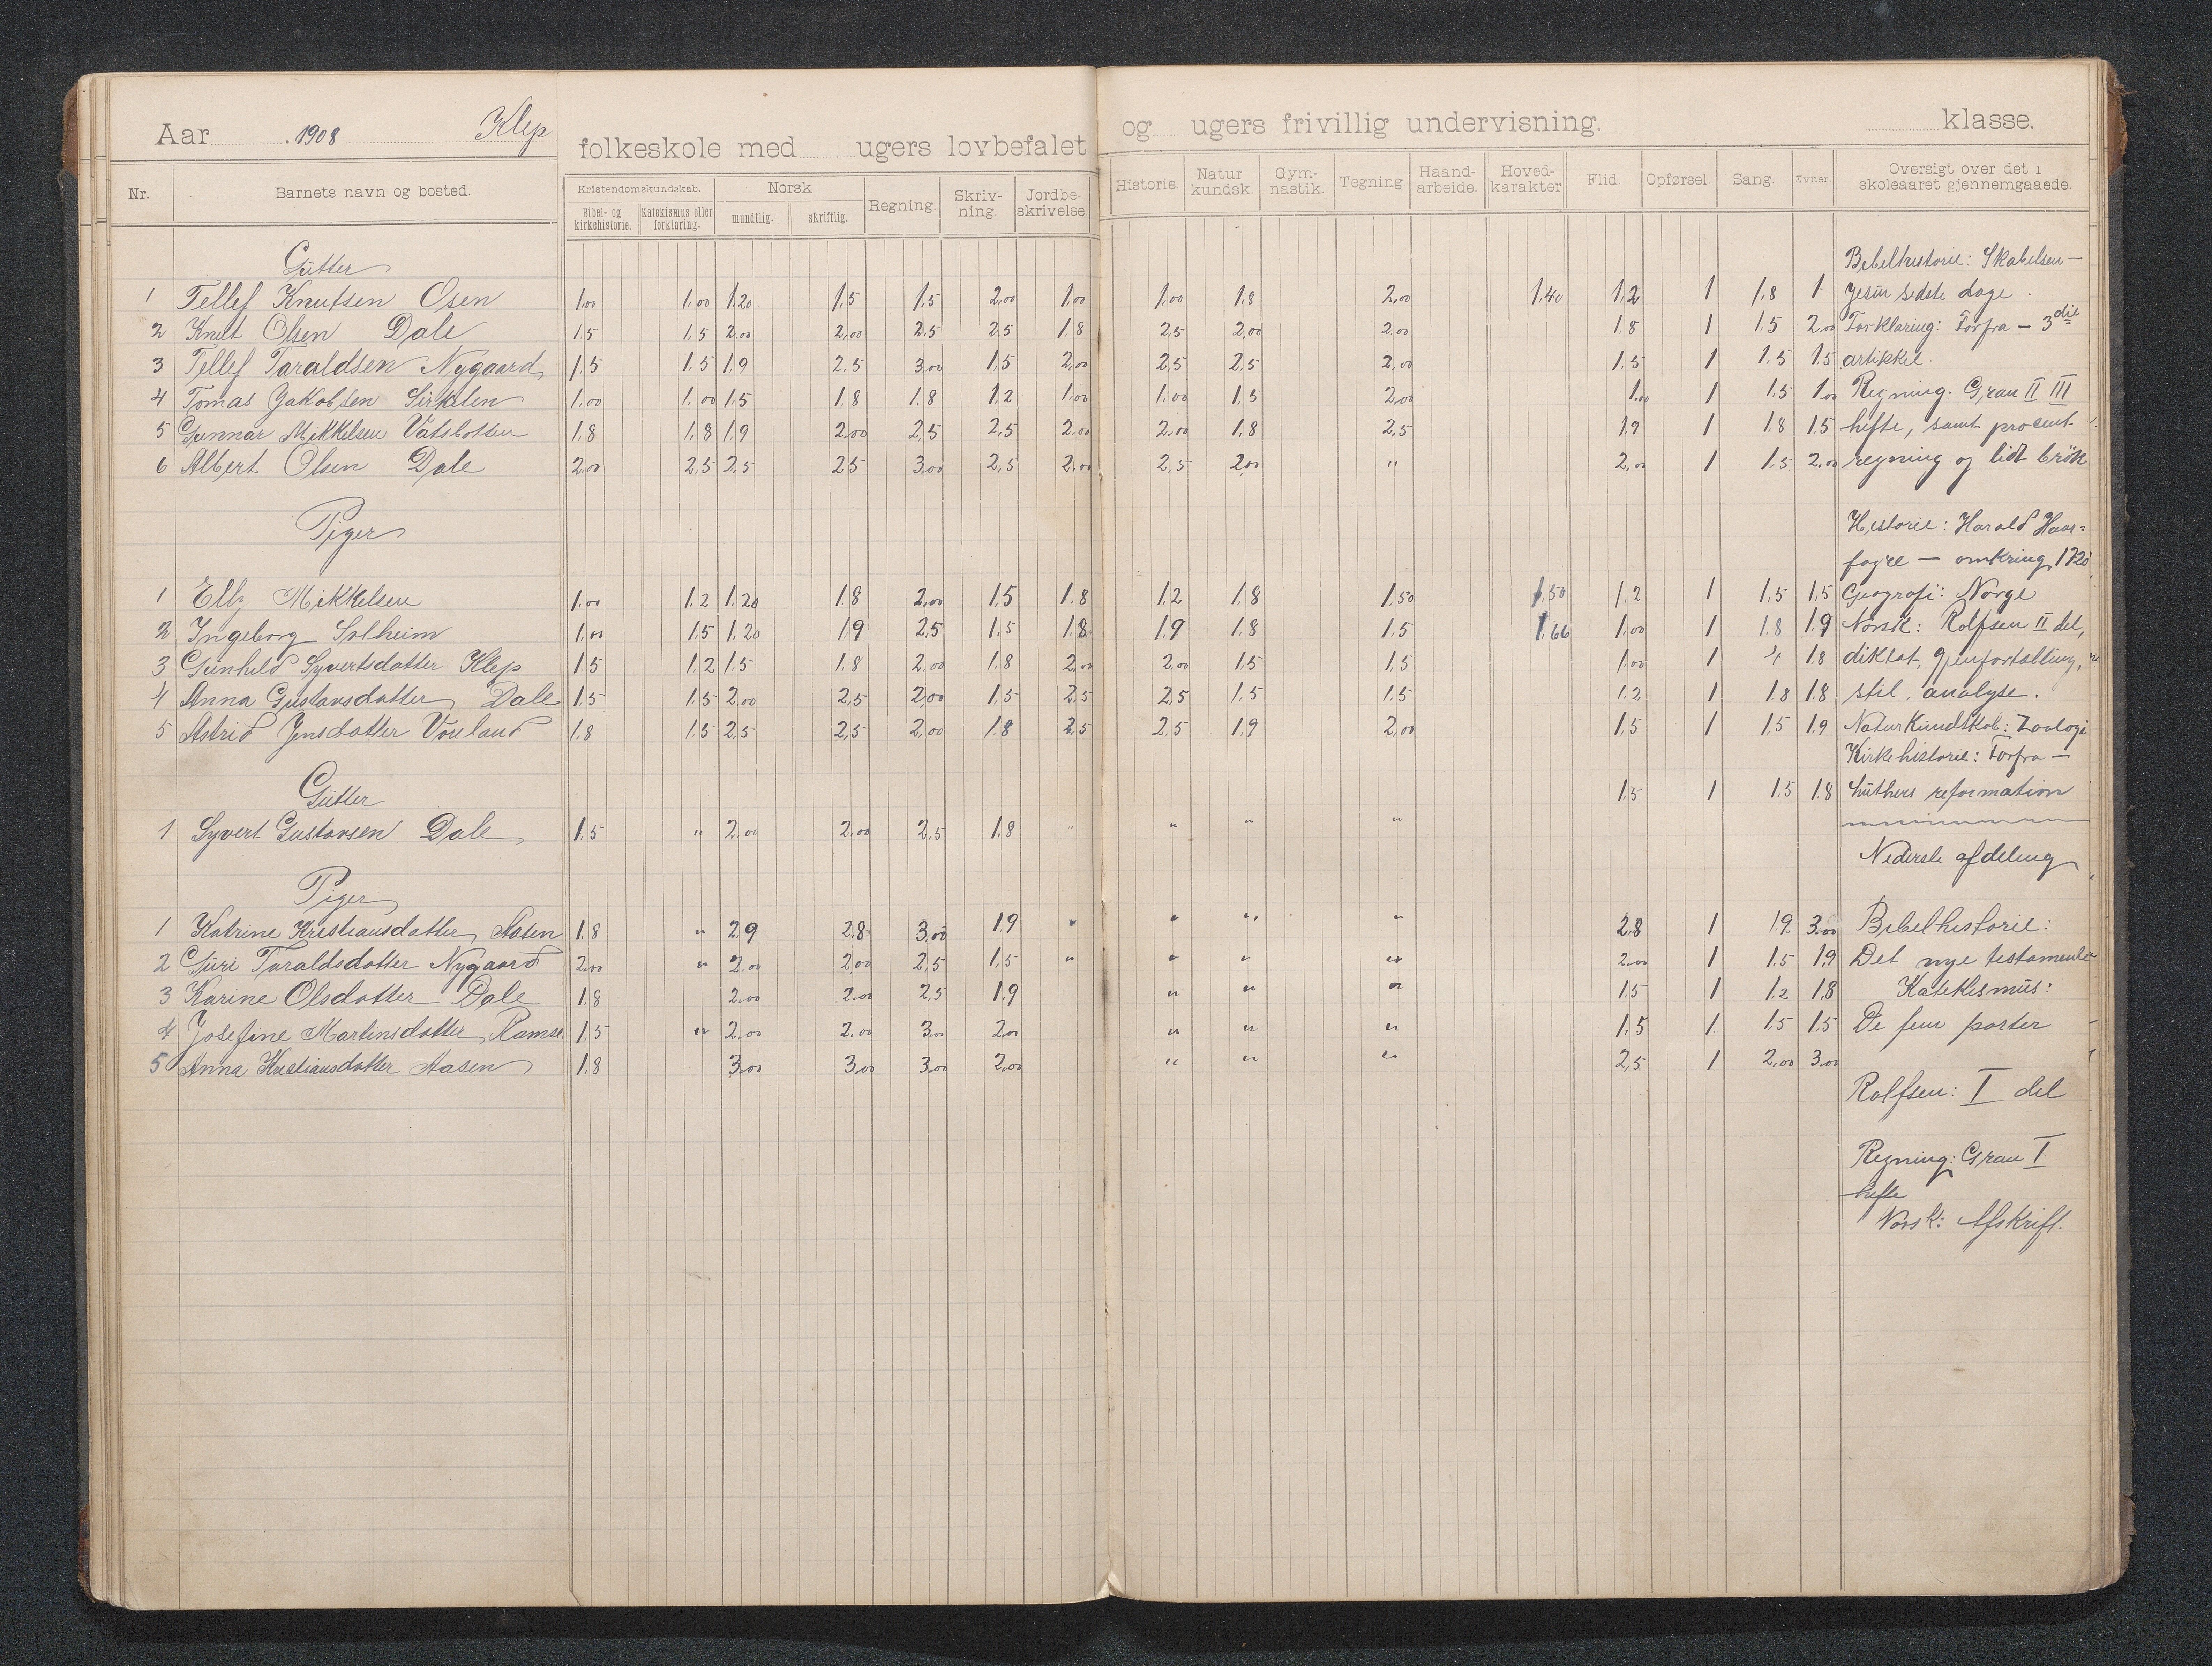 Aar 1908 Klep folkeskole med ugers lovbefalet og ugers frivillig undervisning. klasse.
Nr. Barnets navn og bosted. Kristendomskundskab. Norsk Regning. Skriv-ning. Jordbe-skrivelse Historie. Natur kundsk. Gym-nastik. Tegning Haand-arbeide. Hoved-karakter Flid. Opførsel. Sang. Evner Oversigt over det i skoleaaret gjennemgaaede.
Bibel- og kirkehistorie. Katekismus eller forklaring. mundtlig. skriftlig.
Gutter Bibelhistorie: Skabelsen —
1 Tellef Knutsen Osen 1,00 1,00 1,20 1,5 1,5 2,00 1,00 1,00 1,8 2,00 1,40 1,2 1 1,8 1 Jesu sidste dage.
2 Knut Olsen Dale 1,5 1,5 2,00 2,00 2,5 2,5 1,8 2,5 2,00 2,00 1,8 1 1,5 2,00 Forklaring: Forfra — 3die
3 Tellef Taraldsen Nygaard 1,5 1,5 1,9 2,5 3,00 1,5 2,00 2,5 2,5 2,00 1,5 1 1,5 1,5 artikkel.
4 Tomas Jakobsen 1,00 1,00 1,5 1,8 1,8 1,2 1,00 1,00 1,5 2,00 1,00 1 1,5 1,00 Regning: Grau II III
5 Gunnar Mikkelsen Vatsbotten 1,8 1,8 1,9 2,00 2,5 2,5 2,00 2,00 1,8 2,5 1,9 1 1,8 1,5 hefte, samt procent
6 Albert Olsen Dale 2,00 2,5 2,5 2,5 3,00 2,5 2,00 2,5 2,00 " 2,00 1 1,5 2,00 regning og lidt brök
Piger Historie: Harald Haar=
fagre — omkring 1720
1 Elly Mikkelsen 1,00 1,2 1,20 1,8 2,00 1,5 1,8 1,2 1,8 1,50 1,50 1,2 1 1,5 1,5 Geografi: Norge
2 Ingeborg Solheim 1,00 1,5 1,20 1,9 2,5 1,5 1,8 1,9 1,8 1,5 1,66 1,00 1 1,8 1,9 Norsk: Rolfsen II del,
3 Gunhild Syvertsdatter Klep 1,5 1,2 1,5 1,8 2,00 1,8 2,00 2,00 1,5 1,5 1,00 1 4 1,8 diktat, gjenfortælling,
4 Anna Gustavsdatter Dale 1,5 1,5 2,00 2,5 2,00 1,5 2,5 2,5 1,5 1,5 1,2 1 1,8 1,8 stil, analyse.
5 Astrid Jensdatter Voreland 1,8 1,5 2,5 2,5 2,00 1,8 2,5 2,5 1,9 2,00 1,5 1 1,5 1,9 Naturkundskab: Zoologi
Kirkehistorie: Forfra —
Gutter 1,5 1 1,5 1,8 Luthers reformation
1 Syvert Gustavsen Dale 1,5 " 2,00 2,00 2,5 1,8 " " " "
Nederste afdeling
Piger
1 Katrine Kristiansdatter Aasen 1,8 " 2,9 2,8 3,00 1,9 " " " " 2,8 1 1,9 3,00 Bibelhistorie:
2 Guri Taraldsdatter Nygaard 2,00 " 2,00 2,00 2,5 1,5 " " " " 2,00 1 1,5 1,9 Det nye testamente
3 Karine Olsdatter Dale 1,8 2,00 2,00 2,5 1,9 " " " 1,5 1 1,2 1,8 Katekismus:
4 Josefine Martinsdatter Ramse 1,5 " 2,00 2,00 3,00 2,00 " " " 1,5 1 1,5 1,5 De fem parter
5 Anna Kristiansdatter Aasen 1,8 3,00 3,00 3,00 2,00 " " " 2,5 1 2,00 3,00
Rolfsen: I del
Regning: Grau I
hefte
Norsk: Afskrift.